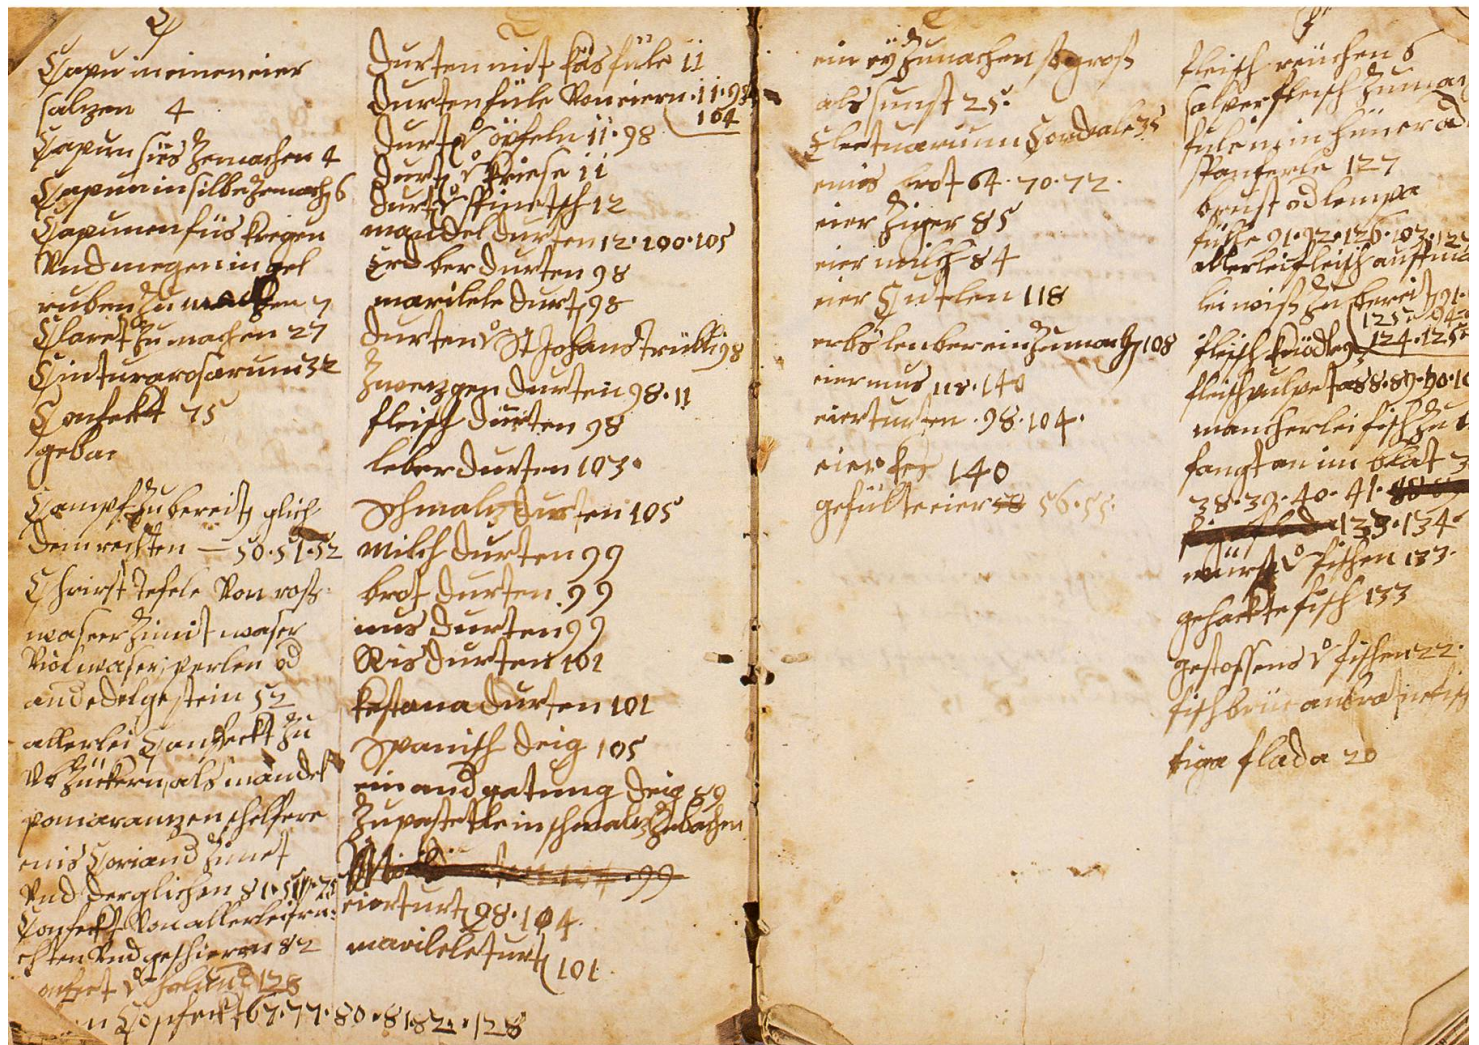 C
Capun in einen eier
salzen 4
Capun sies zemachen 4
Capunen in silbe zemach 6
Capunen füs kregen
Vnd megen in gel
ruben zu machen 7
Claret zu machen 27
Cintura rosarum 32
Confeckt 75
gebac
Campf zu bereit glich
dem rechten — 50·51·52
Christ Tefele Von ros
waser zimit waser
Viol waser perlen od
and edelgestein 52
allerlei Confeckt zu
Vbzückern, als mandel
pomarantzen schelfere
enis Coriand zimet
Vnd derglichen 81·
Confeckt Von allerlei frü
chten Vnd geschieren 82
128
Confeckt 67·77·80·81·82··128
Durten mit käs füle 11
Durten füle Von eiern·11·98
104
Durt Vo öpfeln 11·98
Durt Vo kriese 11
Durt Vo spinetsch 12
mandel durten 12·100·105
Erdber durten 98
marilele durt 98
Durten Vo St Johans trübli 98
Zwerzgen durten 98·11
fleisch durten 98
leber durten 103·
Schmaltz durten 105
milch durten 99
brot durten 99
mus durten 99
Ris durten 101
kestana durten 101
Spanisch deig 105
ein and gatung deig 89
Zu pastetle in schmaltz zebachen
99
eierturt 98·104
marileleturt 101
ein eÿ zu machen so gros
als sunst 25·
Electuarium Cordiale 35
enis brot 64·70·72·
eier ziger 85
eier milch 84
eier Cutlen 118
erbslenberein zu mach 108
eiermus 118·140
eierturten·98·104·
eier kes 140
gefülte eier 56·55·
F
fleisch reüchen 6
salverfleisch zu mac
fülen, in hüner od
spanferle 127
brust od lempe
fülle 91·92·126·103·125
allerlei fleisch auff
lei wis zu bereit 91·
125·94
fleisch knödle 93 124·125·
fleisch pulpet 88·89·90·
mancherlei fisch zu
fangt an im blat 3
38·39·40·41·
133·134·
würst Vo fischen 133·
gehackte fisch 133
gestossens Vo fischen 22·
fisch brüe
figa flada 20